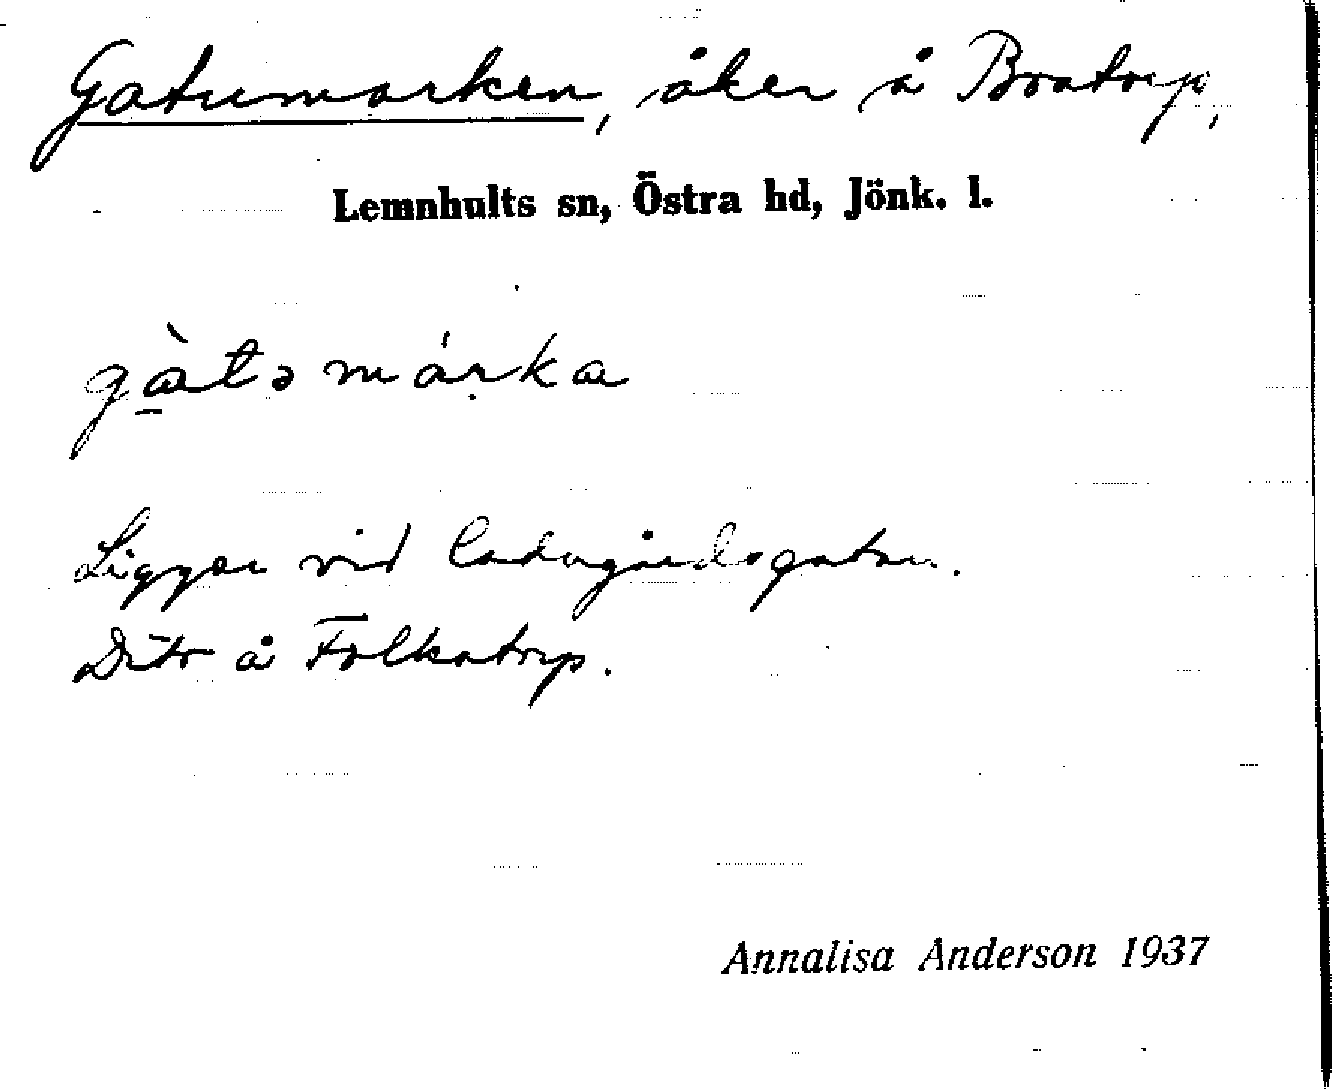 Gatumarken, åker å Bratorp,
Lemnhults sn, Östra hd, Jönk. l.
gàtəmárka
Ligger vid ladugårdsgatan.
Dito å Folkatorp.
Annalisa Anderson 1937